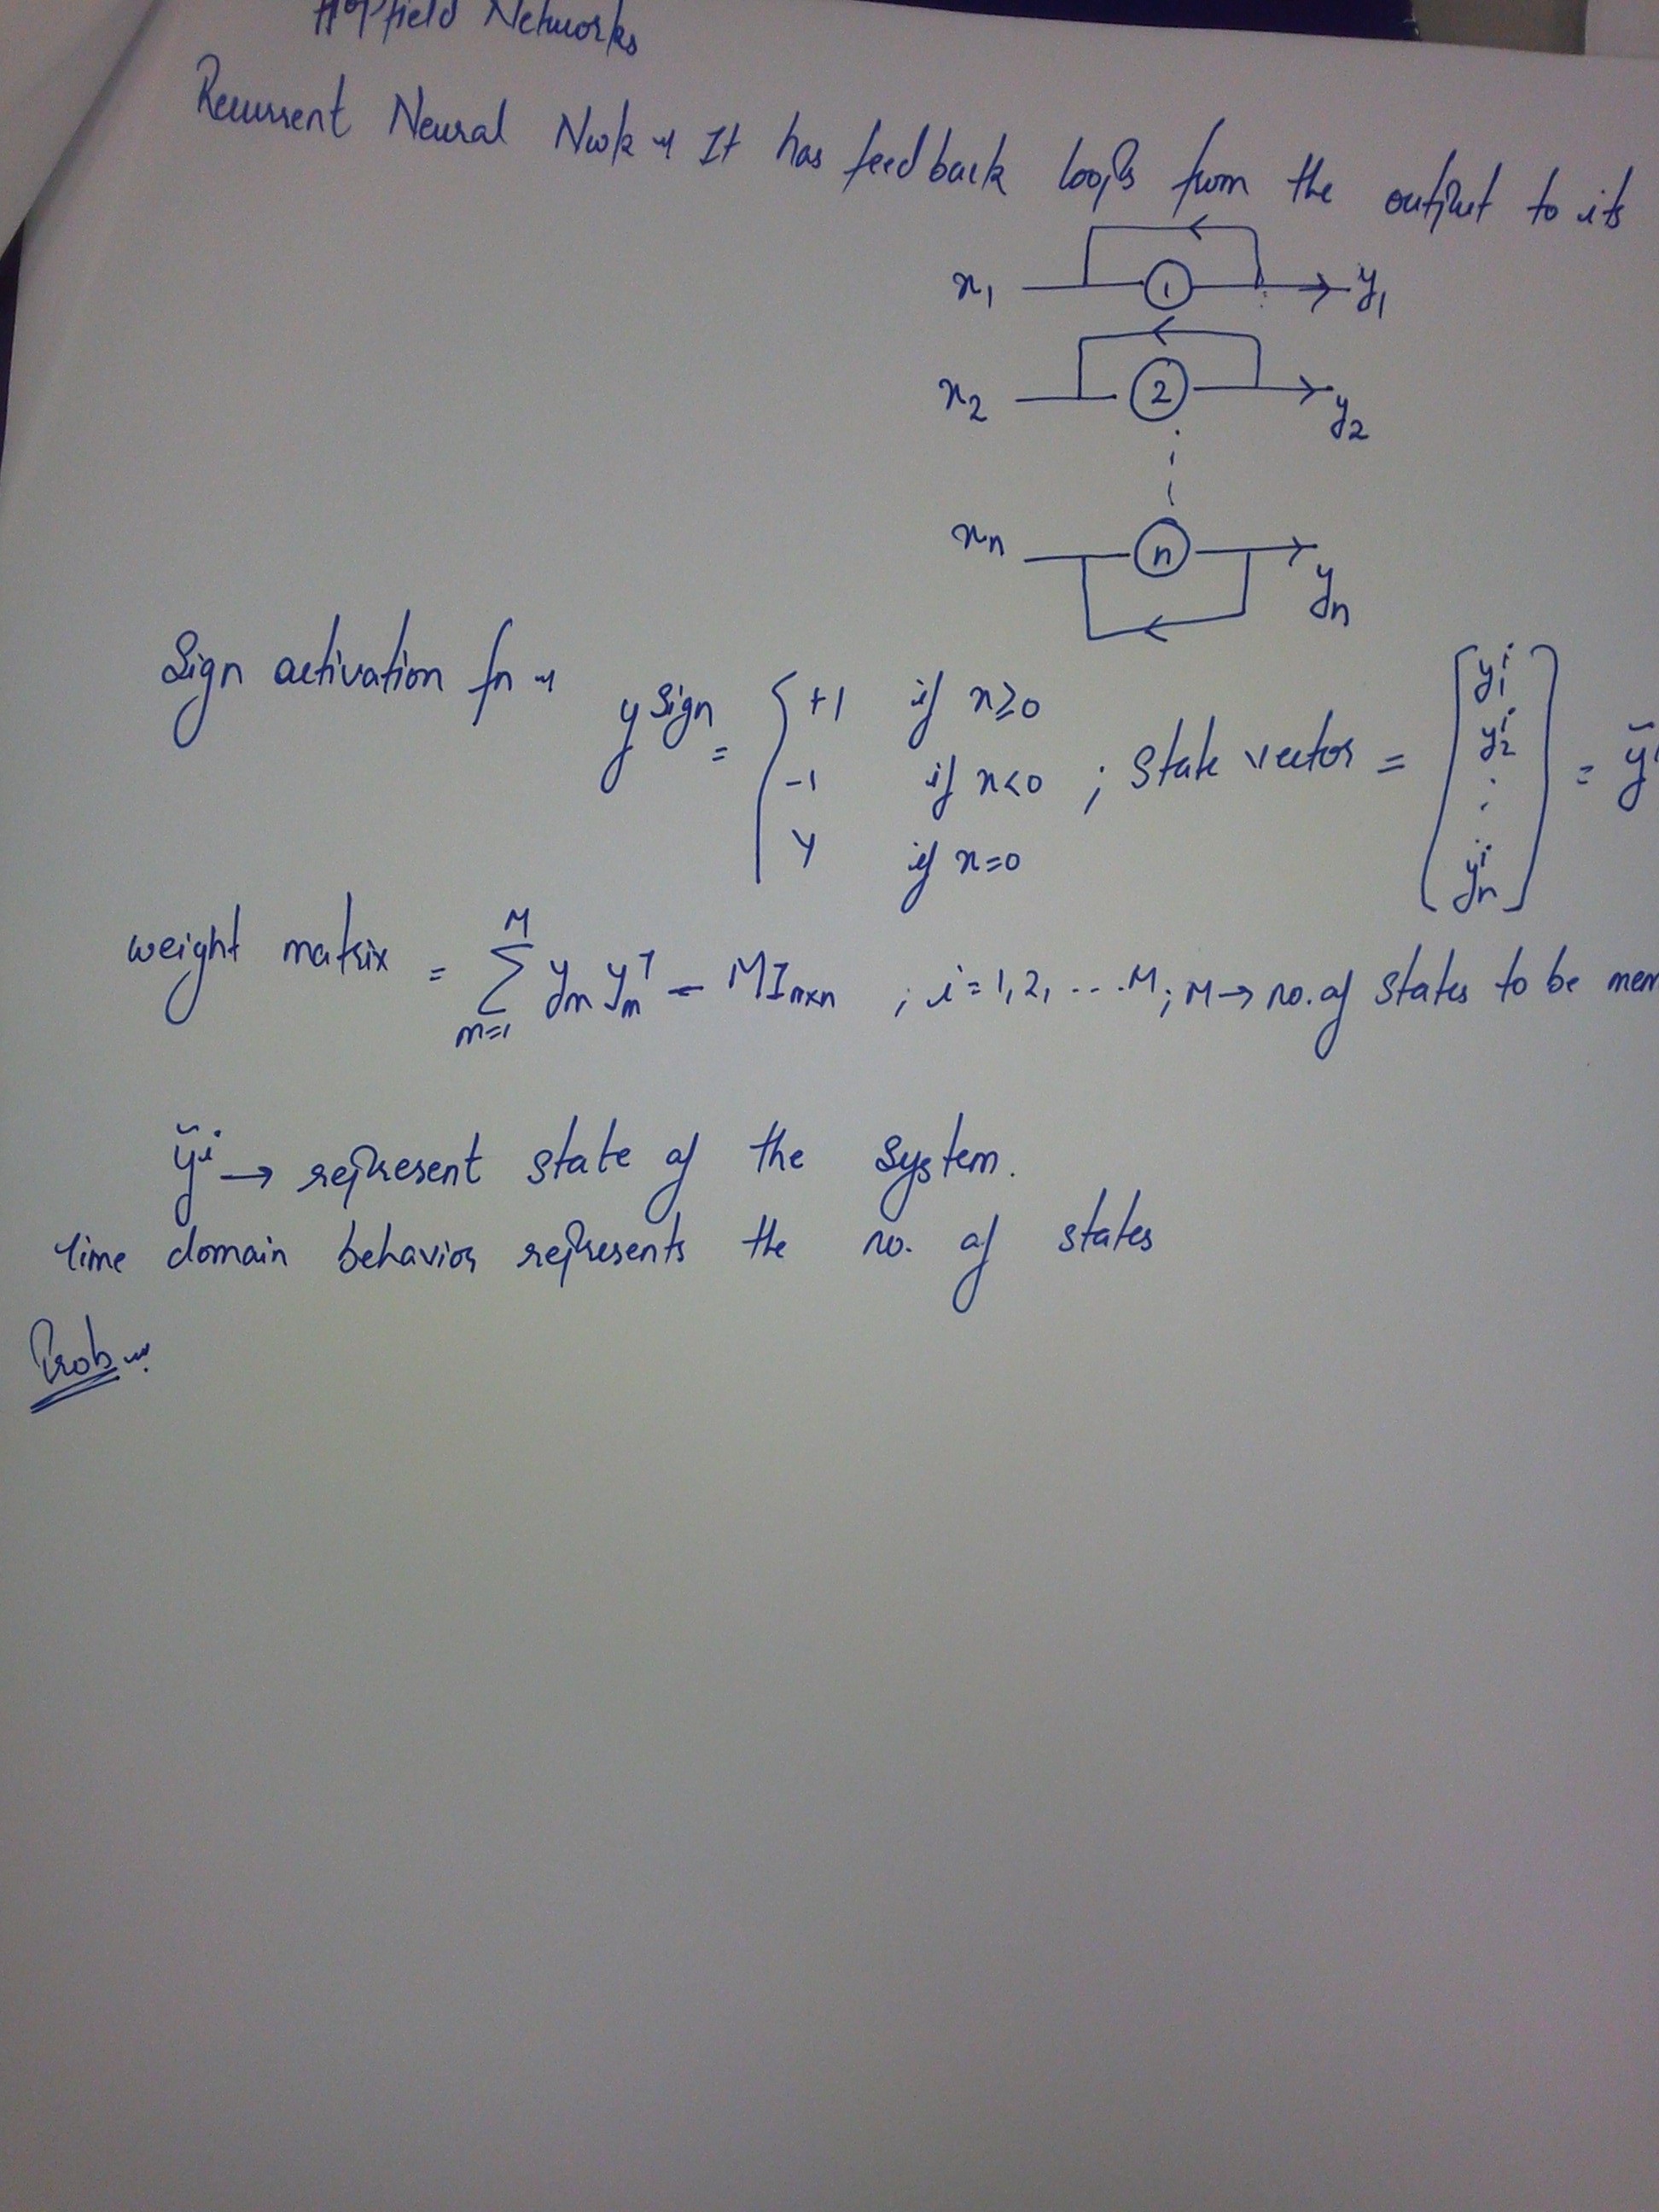 Hopfield Networks
Recurrent Neural Nwk → It has feedback loops from the output to its
x₁ 1 y₁
x₂ 2 y₂
xₙ n yₙ
Sign activation fn → y sign = { +1 if x≥0
-1 if x<0 ; State vector = [y₁ⁱ y₂ⁱ : yₙⁱ] = ỹⁱ
Y if x=0
weight matrix = Σ_{m=1}^{M} yₘ yₘᵀ - M I_{n×n} , i=1,2,...M; M → no. of states to be mem
ỹⁱ → represent state of the system.
Time domain behavior represents the no. of states
Prob →